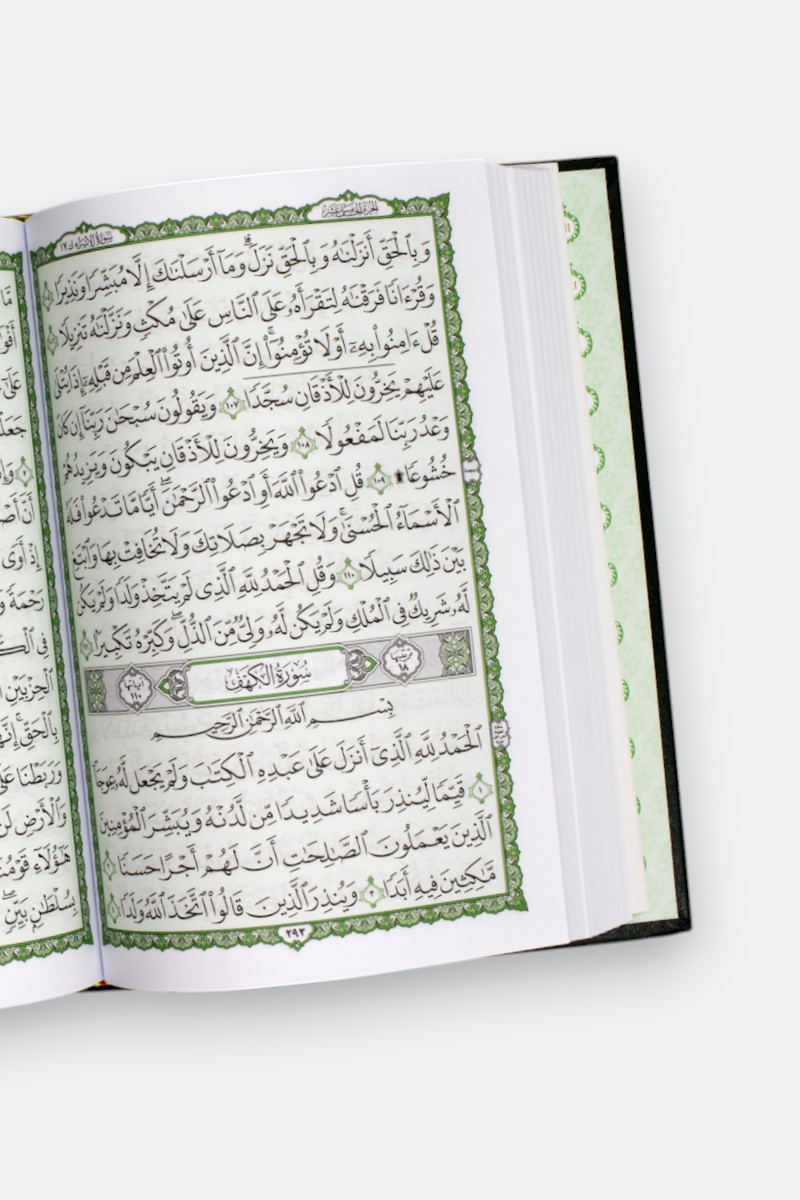 الجزء الخامس عشر
سورة الإسراء ١٧
وَبِٱلْحَقِّ أَنزَلْنَٰهُ وَبِٱلْحَقِّ نَزَلَ ۗ وَمَآ أَرْسَلْنَٰكَ إِلَّا مُبَشِّرًا وَنَذِيرًا
وَقُرْءَانًا فَرَقْنَٰهُ لِتَقْرَأَهُۥ عَلَى ٱلنَّاسِ عَلَىٰ مُكْثٍ وَنَزَّلْنَٰهُ تَنزِيلًا
قُلْ ءَامِنُوا۟ بِهِۦٓ أَوْ لَا تُؤْمِنُوٓا۟ ۚ إِنَّ ٱلَّذِينَ أُوتُوا۟ ٱلْعِلْمَ مِن قَبْلِهِۦٓ إِذَا يُتْلَىٰ
عَلَيْهِمْ يَخِرُّونَ لِلْأَذْقَانِ سُجَّدًا ١٠٧ وَيَقُولُونَ سُبْحَٰنَ رَبِّنَآ إِن كَانَ
وَعْدُ رَبِّنَا لَمَفْعُولًا ١٠٨ وَيَخِرُّونَ لِلْأَذْقَانِ يَبْكُونَ وَيَزِيدُهُمْ
خُشُوعًا ۩ ١٠٩ قُلِ ٱدْعُوا۟ ٱللَّهَ أَوِ ٱدْعُوا۟ ٱلرَّحْمَٰنَ ۖ أَيًّا مَّا تَدْعُوا۟ فَلَهُ
ٱلْأَسْمَآءُ ٱلْحُسْنَىٰ ۚ وَلَا تَجْهَرْ بِصَلَاتِكَ وَلَا تُخَافِتْ بِهَا وَٱبْتَغِ
بَيْنَ ذَٰلِكَ سَبِيلًا ١١٠ وَقُلِ ٱلْحَمْدُ لِلَّهِ ٱلَّذِى لَمْ يَتَّخِذْ وَلَدًا وَلَمْ يَكُن
لَّهُۥ شَرِيكٌ فِى ٱلْمُلْكِ وَلَمْ يَكُن لَّهُۥ وَلِىٌّ مِّنَ ٱلذُّلِّ ۖ وَكَبِّرْهُ تَكْبِيرًا
ترتيبها ١٨ سُورَةُ الكَهْفِ آياتها ١١٠
بِسْمِ ٱللَّهِ ٱلرَّحْمَٰنِ ٱلرَّحِيمِ
ٱلْحَمْدُ لِلَّهِ ٱلَّذِىٓ أَنزَلَ عَلَىٰ عَبْدِهِ ٱلْكِتَٰبَ وَلَمْ يَجْعَل لَّهُۥ عِوَجَا
١ قَيِّمًا لِّيُنذِرَ بَأْسًا شَدِيدًا مِّن لَّدُنْهُ وَيُبَشِّرَ ٱلْمُؤْمِنِينَ
ٱلَّذِينَ يَعْمَلُونَ ٱلصَّٰلِحَٰتِ أَنَّ لَهُمْ أَجْرًا حَسَنًا ٢
مَّٰكِثِينَ فِيهِ أَبَدًا ٣ وَيُنذِرَ ٱلَّذِينَ قَالُوا۟ ٱتَّخَذَ ٱللَّهُ وَلَدًا ٤
٢٩٣
مَّا
عَلَىٰٓ
إِذْ أَوَى
رَحْمَةً
فِى
ٱلْحِزْبَيْنِ
بِٱلْحَقِّ ۚ
وَرَبَطْنَا
وَٱلْأَرْضِ لَن
هَٰٓؤُلَآءِ
بِسُلْطَٰنٍۭ بَيِّنٍ ۖ